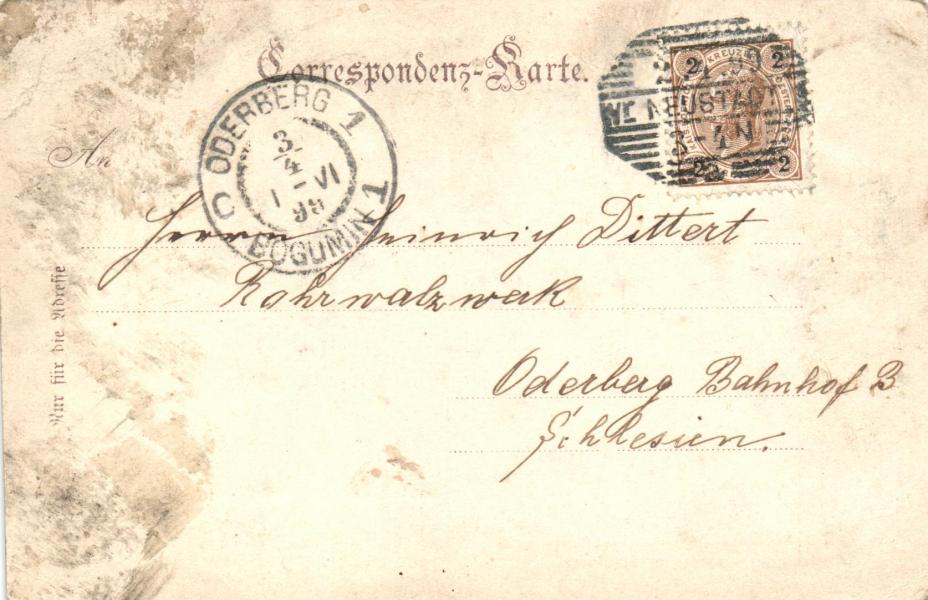 Correspondenz-Karte.
2 KREUZER 2
NEUSTADT
3-4 N
2 2
ODERBERG 1
3/4
1 VI
99
BOGUMIN 1
An
Herrn Heinrich Dittert
Rohrwalzwerk
Oderberg Bahnhof
Schlesien.
Nur für die Adresse